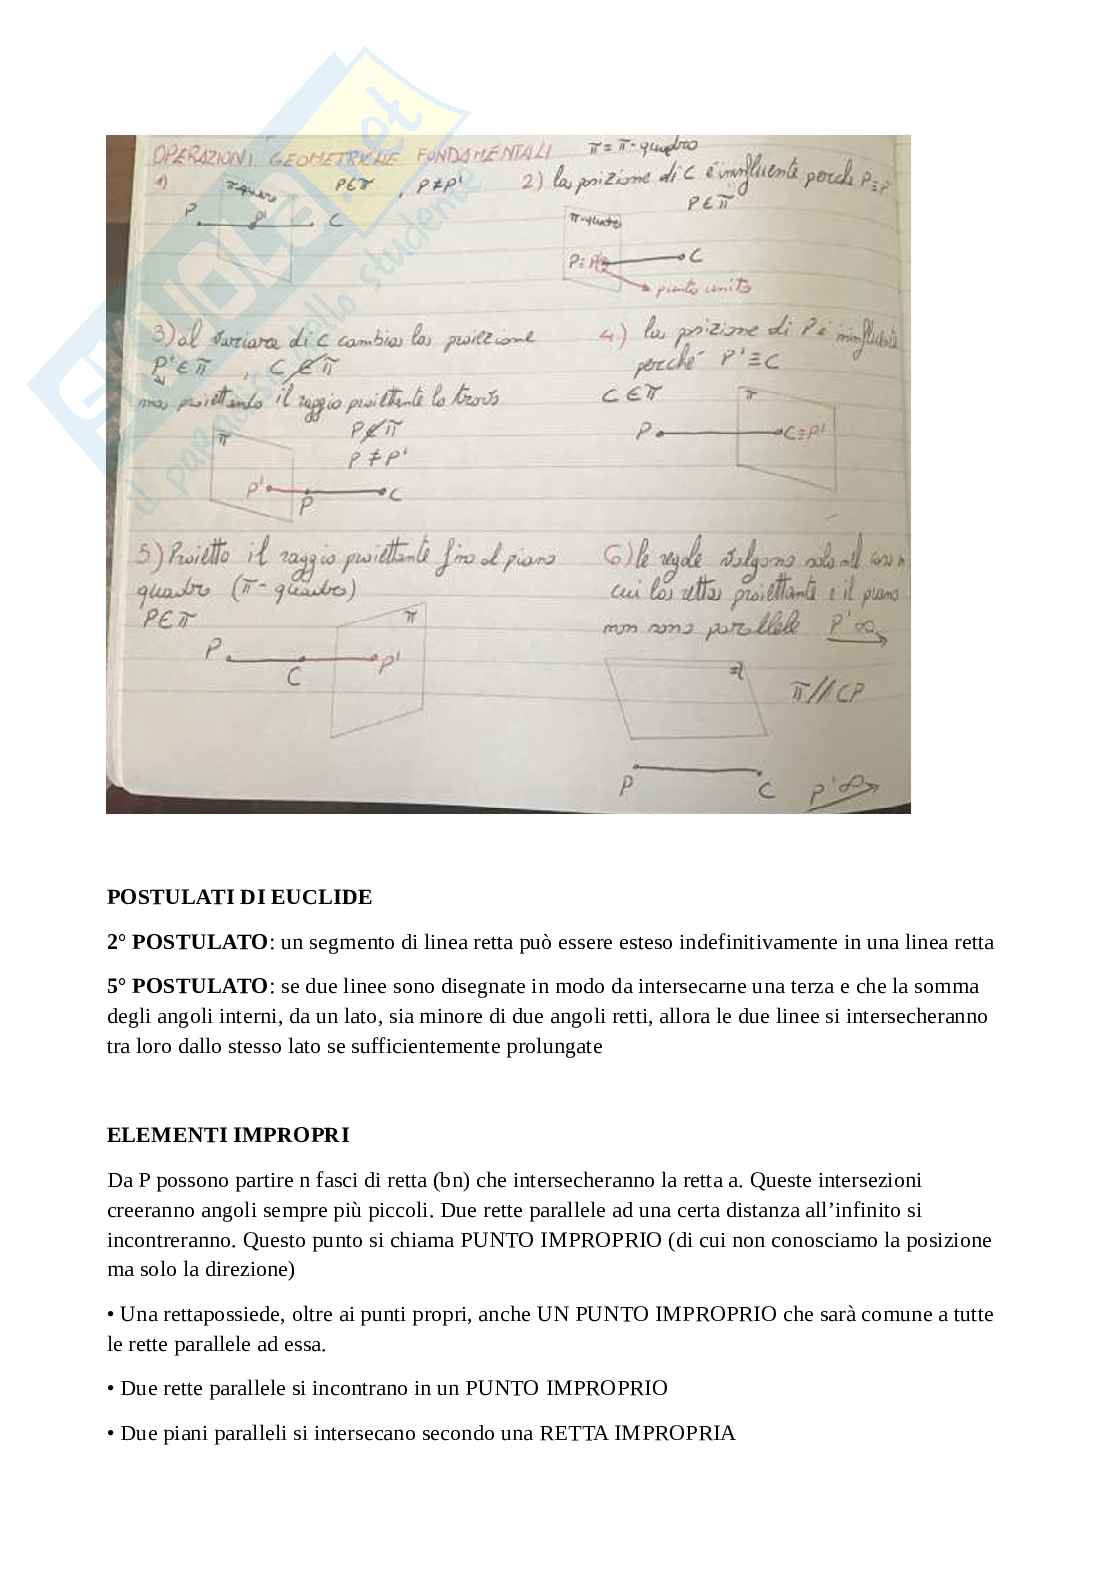 SKUOLA.net
il paradiso dello studente
OPERAZIONI GEOMETRICHE FONDAMENTALI
π = π-quadro
1)
P∈π , P≠P'
P
C
2) la posizione di C è ininfluente perché P≡P'
P∈π
π-quadro
P≡P'
C
punto unito
3) al variare di C cambia la proiezione
P'∈π , C∉π
ma proiettando il raggio proiettante lo trovo
P∉π
P≠P'
π
P'
P
C
4) la posizione di P è ininfluente
perché P'≡C
C∈π
π
P
C≡P'
5) Proietto il raggio proiettante fino al piano
quadro (π-quadro)
P∈π
π
P
C
P'
6) le regole valgono solo nel caso in
cui la retta proiettante e il piano
non sono parallele P'∞
π
π//CP
P
C
P'∞
POSTULATI DI EUCLIDE
2° POSTULATO: un segmento di linea retta può essere esteso indefinitivamente in una linea retta
5° POSTULATO: se due linee sono disegnate in modo da intersecarne una terza e che la somma
degli angoli interni, da un lato, sia minore di due angoli retti, allora le due linee si intersecheranno
tra loro dallo stesso lato se sufficientemente prolungate
ELEMENTI IMPROPRI
Da P possono partire n fasci di retta (bn) che intersecheranno la retta a. Queste intersezioni
creeranno angoli sempre più piccoli. Due rette parallele ad una certa distanza all’infinito si
incontreranno. Questo punto si chiama PUNTO IMPROPRIO (di cui non conosciamo la posizione
ma solo la direzione)
• Una rettapossiede, oltre ai punti propri, anche UN PUNTO IMPROPRIO che sarà comune a tutte
le rette parallele ad essa.
• Due rette parallele si incontrano in un PUNTO IMPROPRIO
• Due piani paralleli si intersecano secondo una RETTA IMPROPRIA